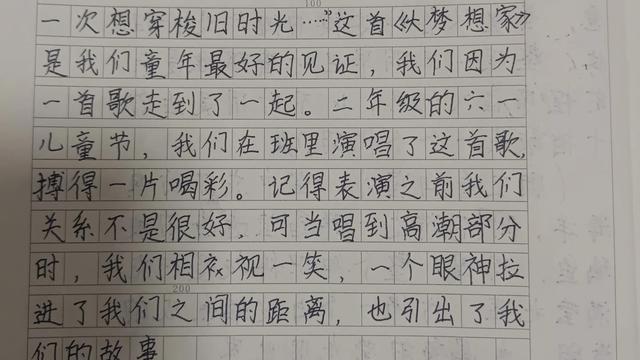 100
一次想穿梭旧时光……”这首《大梦想家》
是我们童年最好的见证，我们因为
一首歌走到了一起。二年级的六一
儿童节，我们在班里演唱了这首歌，
搏得一片喝彩。记得表演之前我们
关系不是很好，可当唱到高潮部分
时，我们相视一笑，一个眼神拉
200
进了我们之间的距离，也引出了我
们的故事